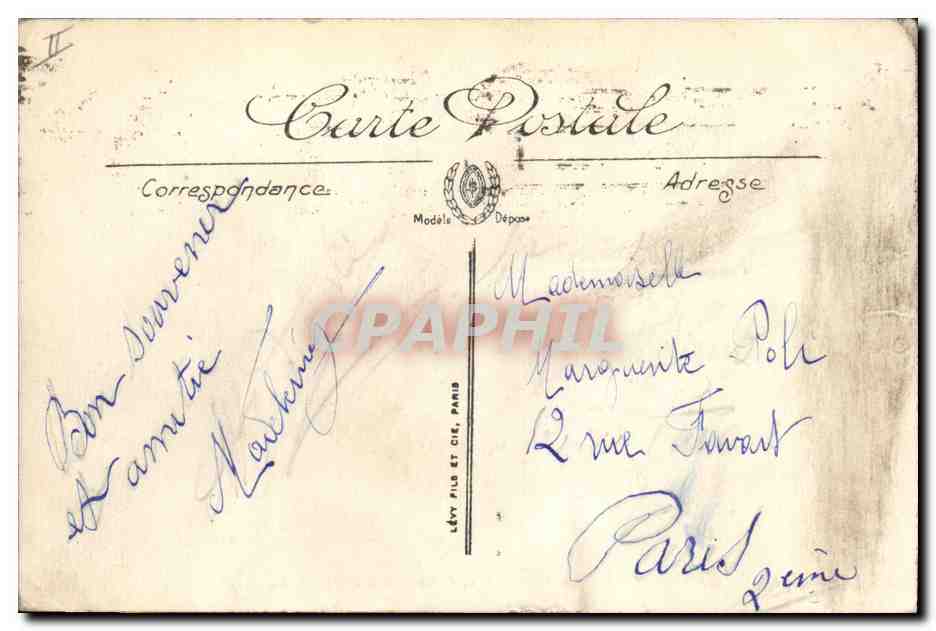 II
Carte Postale
Correspondance
Adresse
Modèle Déposé
Bon souvenir
et amitié
Mademoiselle
Marguerite Poli
12 rue Favart
Paris
2ème
LÉVY FILS ET CIE, PARIS
CPAPHIL